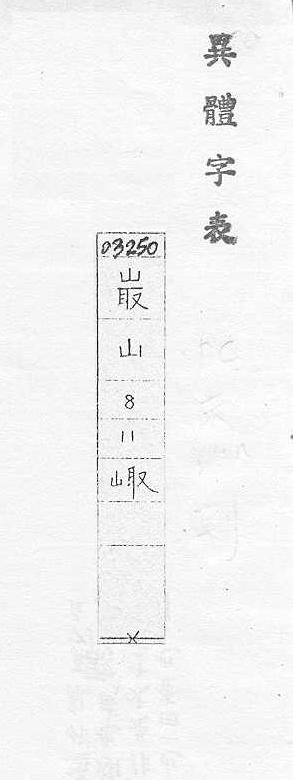 異體字表
03250
嶯
山
8
11
㠫